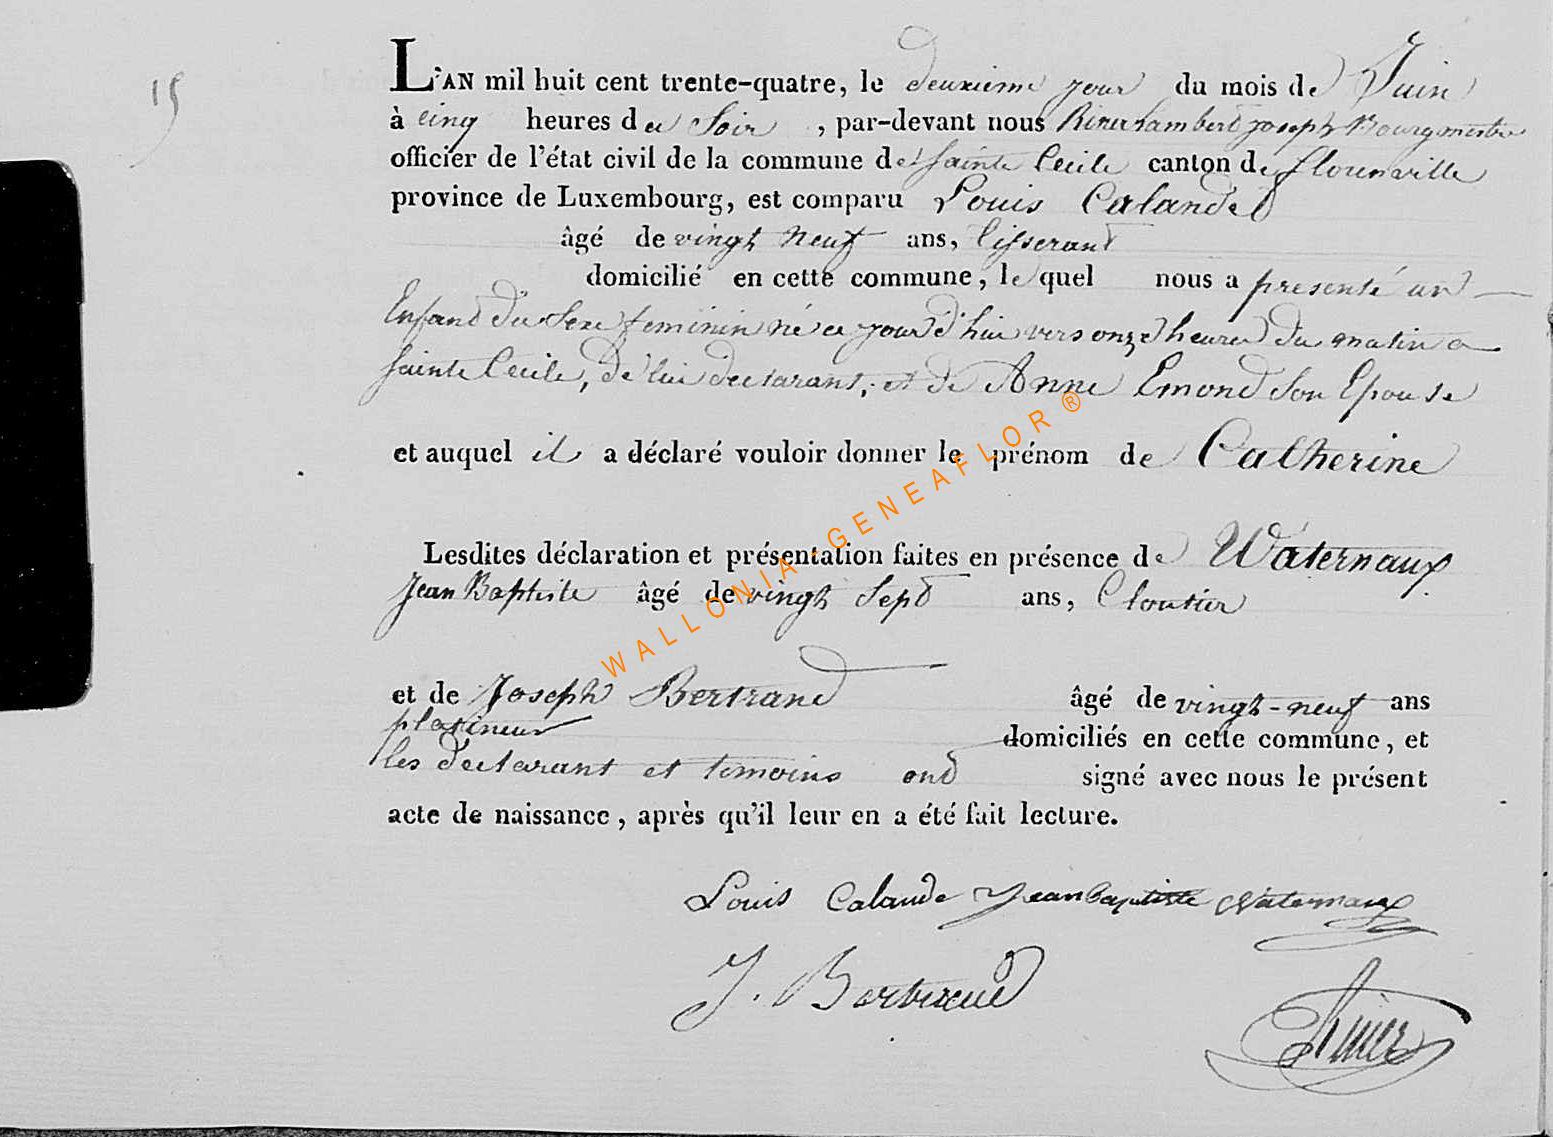 15
L'AN mil huit cent trente-quatre, le deuxieme jour du mois de Juin
à cinq heures du Soir, par-devant nous Joseph Bourgmestre
officier de l'état civil de la commune de Sainte Cecile canton de florenville
province de Luxembourg, est comparu Louis Calande
âgé de vingt neuf ans, tisserand
domicilié en cette commune, le quel nous a presenté un
Enfant du Sexe feminin né ce jour d'hui vers onze heures du matin a
Sainte Cecile, de lui declarant, et de Anne Emond Son Epouse
et auquel il a déclaré vouloir donner le prénom de Catherine
Lesdites déclaration et présentation faites en présence de Waternaux
Jean Baptiste âgé de vingt Sept ans, Cloutier
et de Joseph Bertrand âgé de vingt-neuf ans
platineur domiciliés en cette commune, et
les declarant et temoins ont signé avec nous le présent
acte de naissance, après qu'il leur en a été fait lecture.
Louis Calande Jean baptiste Waternaux
J. Bertrand
WALLONIA-GENEAFLOR®